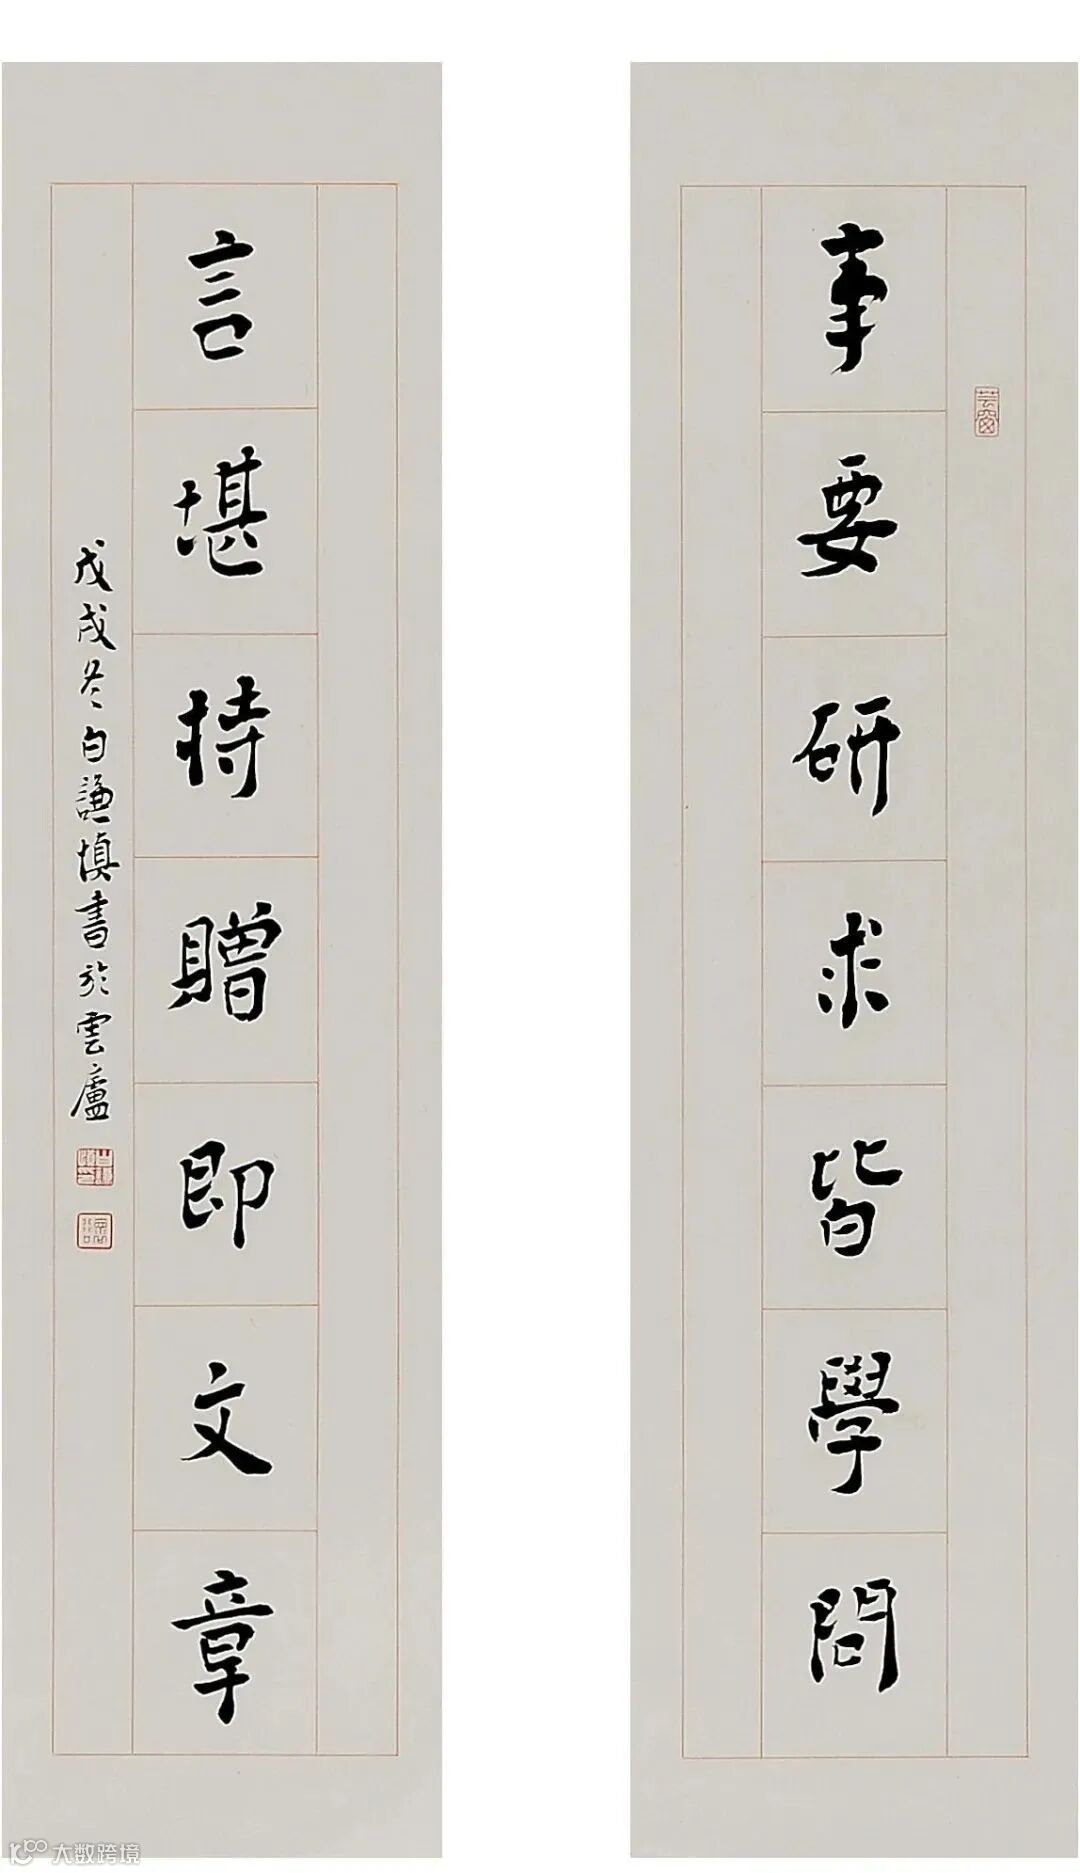 事要研求皆學問
芸窗
言堪持贈即文章
戊戌冬白謙慎書於雲廬
大数跨境